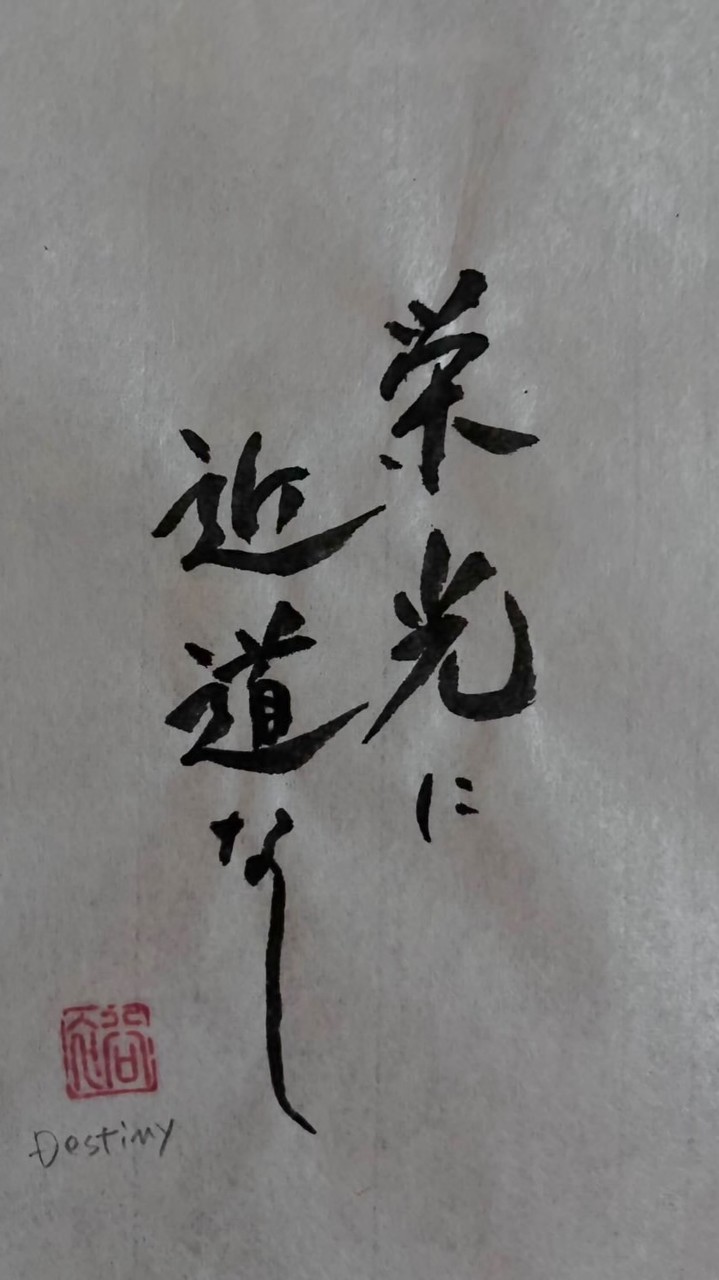 栄光に
近道なし
Destiny